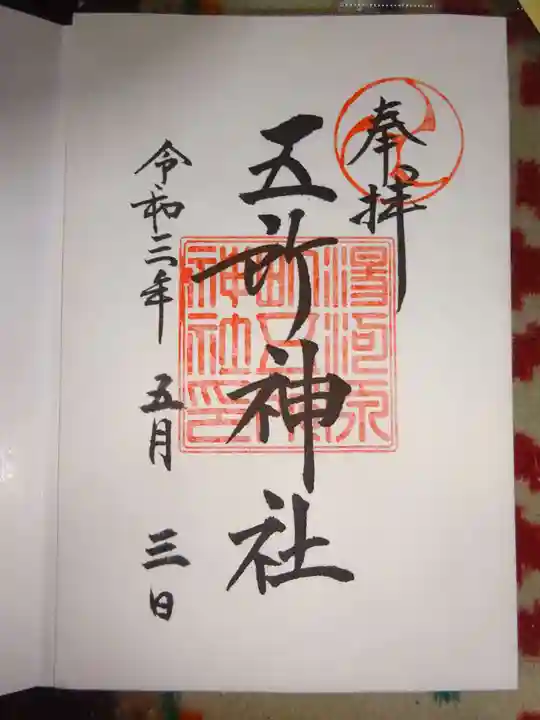 奉拝
五所神社
湯河原
五所
神社印
令和三年 五月 三日